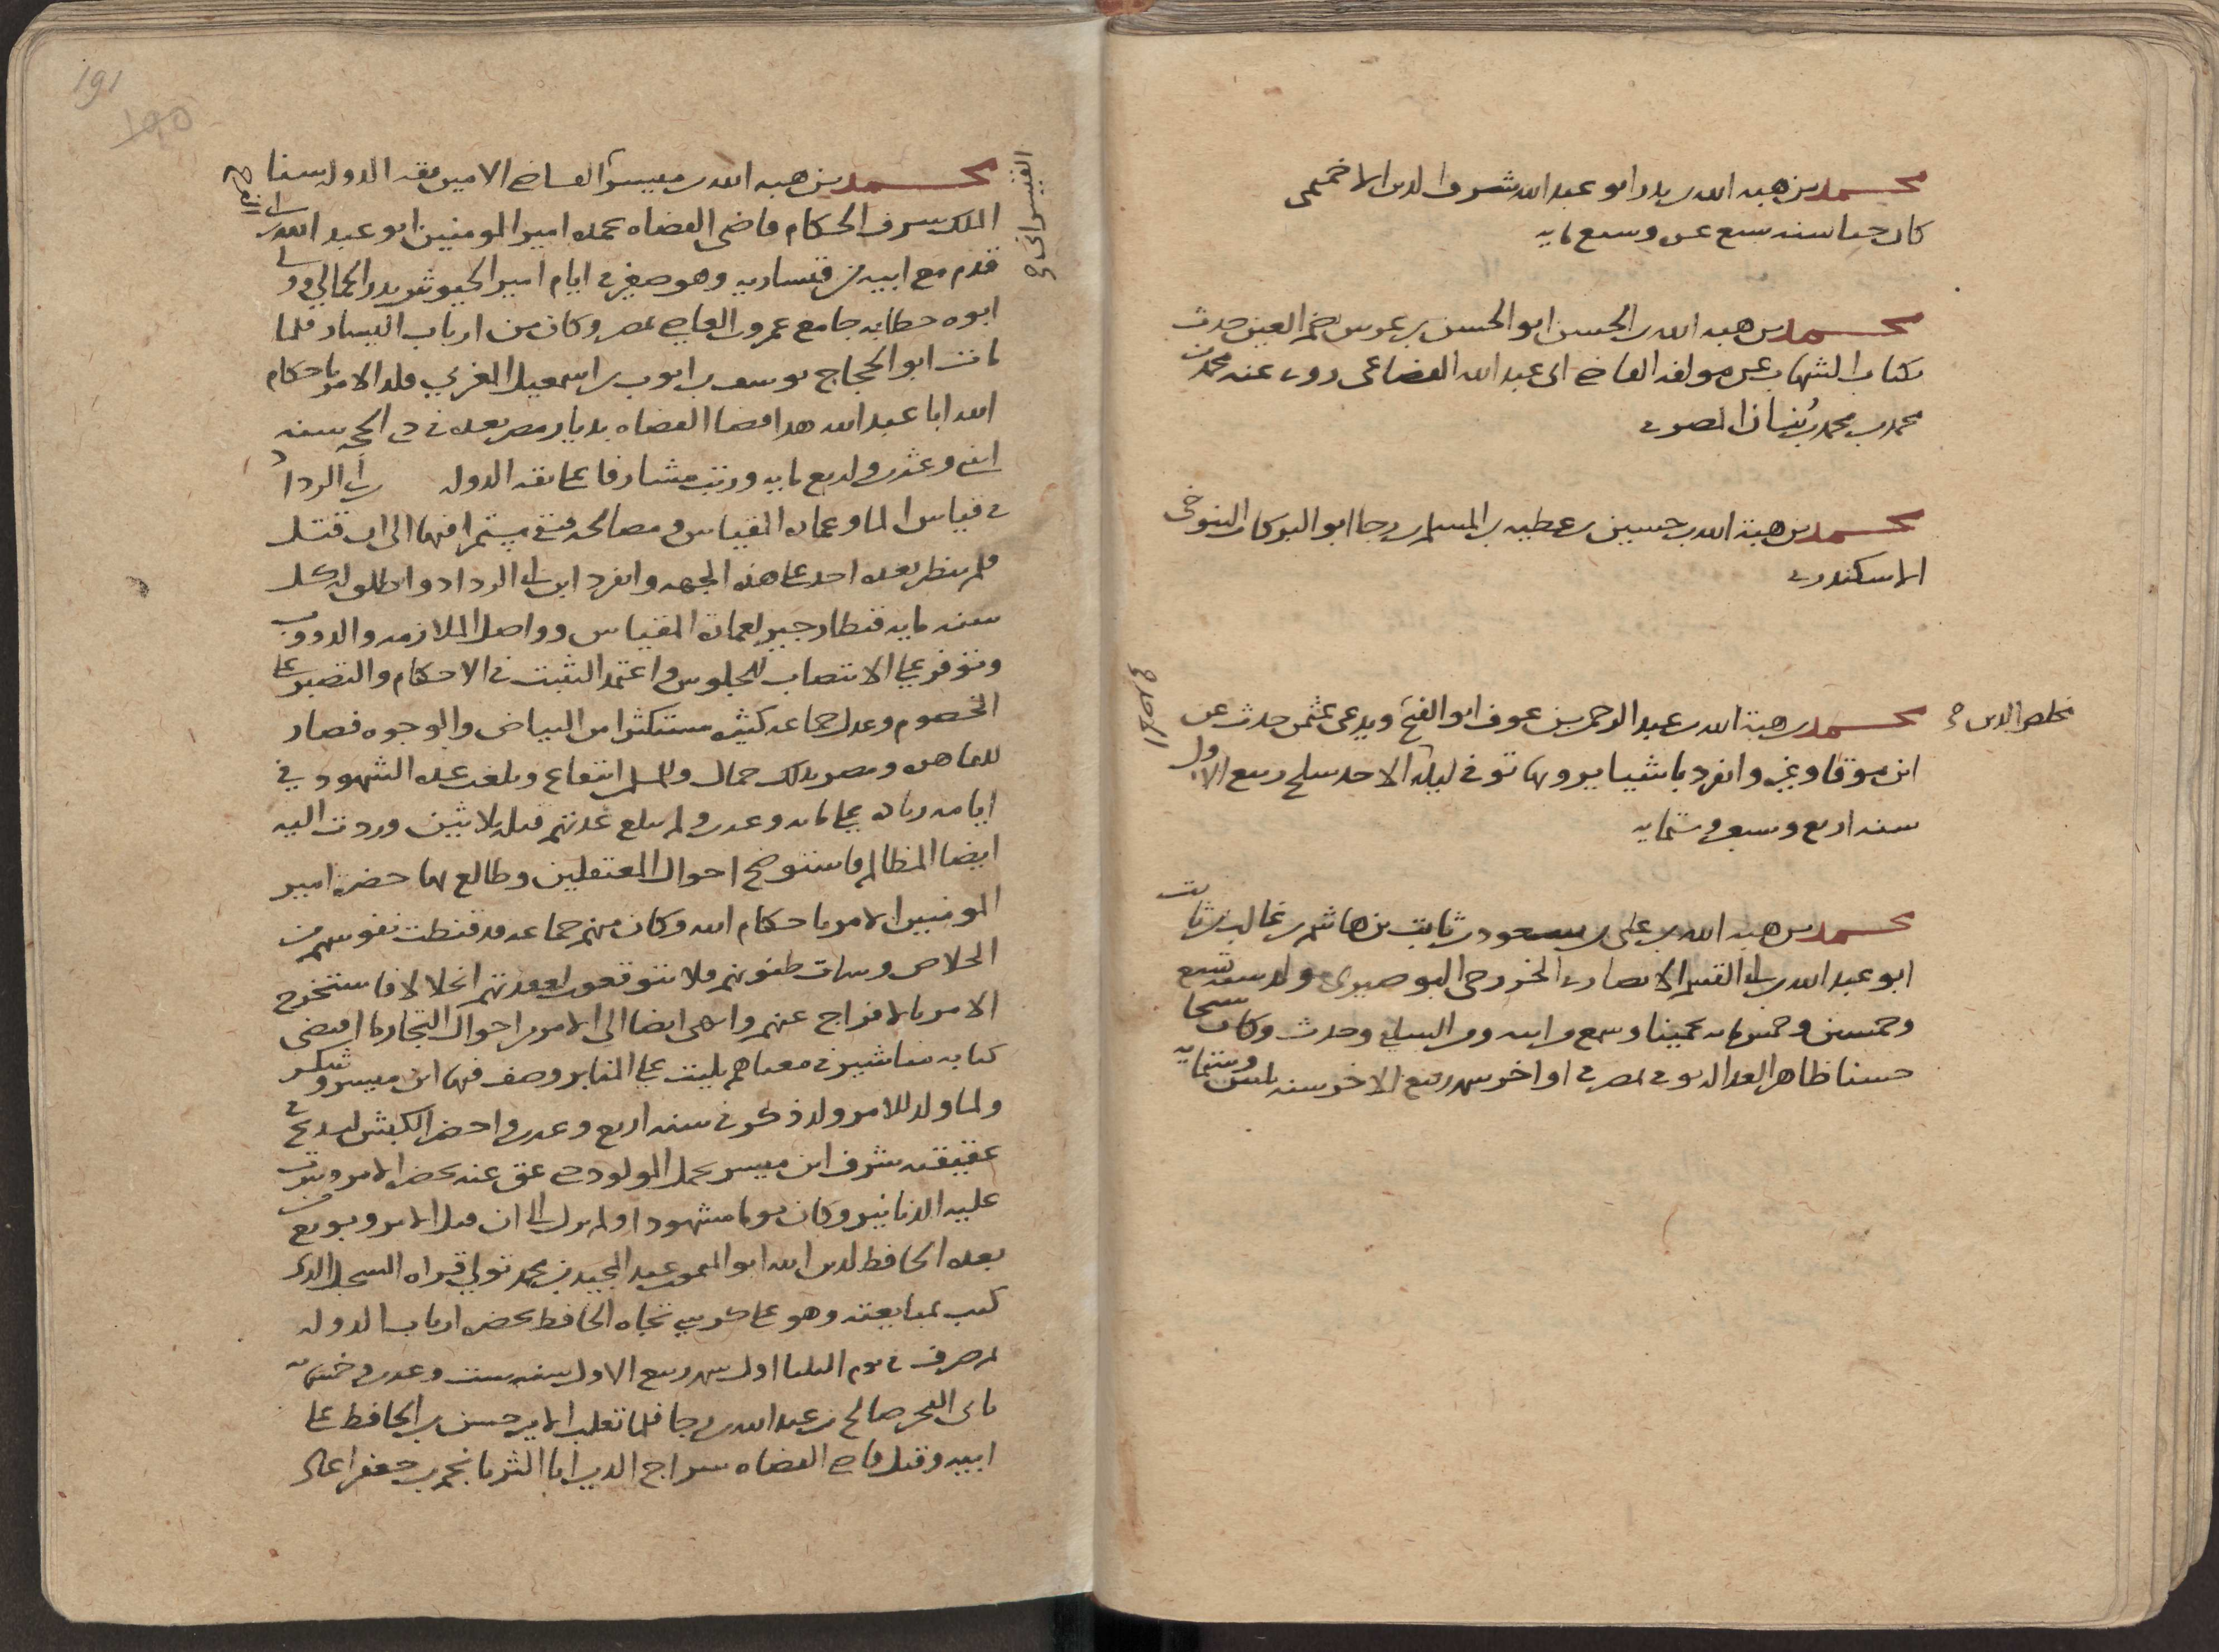 محمد بن هبه الله بن بدر ابو عبد الله شرف الدين الاخميمى
كان حيا سنه سبع عشر وسبع مايه
محمد بن هبه الله بن الحسن ابو الحسن بن عرس نجم العين حدث
بكتاب الشهاب عن مولفه القاضى ابى عبد الله القضاعى روى عنه محمد بن
محمد بن محمد بن بُنان المصرى
محمد بن هبة الله بن حسين بن عطيه بن المسلم بن رجا ابو البركات التنوخى
الاسكندرى
مخلص الدين
محمد بن هبة الله بن عبد الرحمن بن عوف ابو الفتح ويدعى عثمن حدث عن
ابن موقا وغيره وانفرد باشيا يرويها توفى ليلة الاحد سلخ ربيع الاول
سنه اربع وسبعين وستمايه
محمد بن هبه الله بن على بن مسعود بن ثابت بن هاشم بن غالب بن ثابت
ابو عبد الله بن ابى القسم الانصارى الخزرجى البوصيرى ولد سنه تسع
وخمسين وخمس مايه تخمينا وسمع من ابيه ومن السلفى وحدث وكان شيخا
حسنا ظاهر العداله توفى بمصر فى اواخر شهر ربيع الاخر سنه ثلثين وستمايه
191
190
القيسرانى
محمد بن هبه الله بن ميسر القاضى الامين ثقه الدوله سنا
الملك شرف الحكام قاضى القضاه عمده امير المومنين ابو عبد الله بن ابى الفرج
قدم مع ابيه من قيساريه وهو صغير فى ايام امير الجيوش بدر الجمالى وولى
ابوه خطابه جامع عمرو بن العاص بمصر وكان من ارباب اليسار فلما
مات ابو الحجاج يوسف بن ايوب بن اسمعيل المغربى قلد الامر باحكام
الله ابا عبد الله هذا قضا القضاه بديار مصر بعده فى ذى الحجه سنه
 ورتب مشارفا على ثقه الدوله بن ابى الرداد
فى قياس الما وعماره المقياس ومصالحه فبقى مستمرا فيها الى ان قتل
فلم ينظر بعده احد على هذه الجهه وانفرد ابن ابى الرداد واطلق له كل
سنه مايه قنطار جير لعماره المقياس وواصل الملازمه والدووب
وتوفر على الانتصاب للجلوس واعتمد التثبت فى الاحكام والتصبر على
الخصوم وعدل جماعه كثيره مستكثرا من البياض والوجوه فصار
للقاهره ومصر بذلك جمال وللمسلمين انتفاع وبلغت عده الشهود فى
ايامه زياده على مايه وعشرين ولم تبلغ عدتهم قبله ثلاثين وردت اليه
ايضا المظالم فاستوضح احوال المعتقلين وطالع بها حضره امير
المومنين الامر باحكام الله وكان منهم جماعه قد قنطت نفوسهم من
الخلاص وسات ظنونهم فلا يتوقعون لعقدتهم انحلالا فاستخرج
الامر بالافراج عنهم وانهى ايضا الى الامر من احوال التجار ما اقتضى
كتابه مناشير فى معناهم تليت على المنابر وصف فيها ابن ميسر وشكر
ولما ولد للامر ولد ذكر فى سنه اربع وعشرين واحضر الكبش ليذبح فى
عقيقته شرف ابن ميسر بحمل المولود حتى عق عنه بحضره الامر ونثرت
عليه الدنانير وكان يوما مشهودا ولم يزل الى ان قتل الامر وبويع
بعده الحافظ لدين الله ابو الميمون عبد المجيد بن محمد تولى قراه السجل الذى
كتب بمبايعته وهو على كرسى تجاه الحافظ بحضره ارباب الدوله
ثم صرف فى يوم الثلثا اول شهر ربيع الاول سنه ست وعشرين وخمس مايه
بابى الفخر صالح بن عبد الله بن رجا فلما تغلب الامير حسن بن الحافظ على
ابيه وقتل قاضى القضاه سراج الدين ابا الثريا نجم بن جعفر اعاد